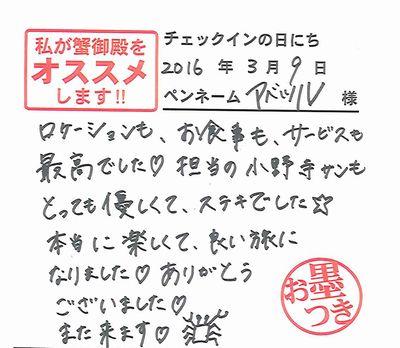 私が蟹御殿を
オススメ
します!!
チェックインの日にち
2016 年 3月 9 日
ペンネーム 様
ロケーションも、お食事も、サービスも
最高でした♡ 担当の小野寺サンも
とっても優しくて、ステキでした☆
本当に楽しくて、良い旅に
なりました♡ ありがとう
ございました♡
また来ます♡
お墨
つき